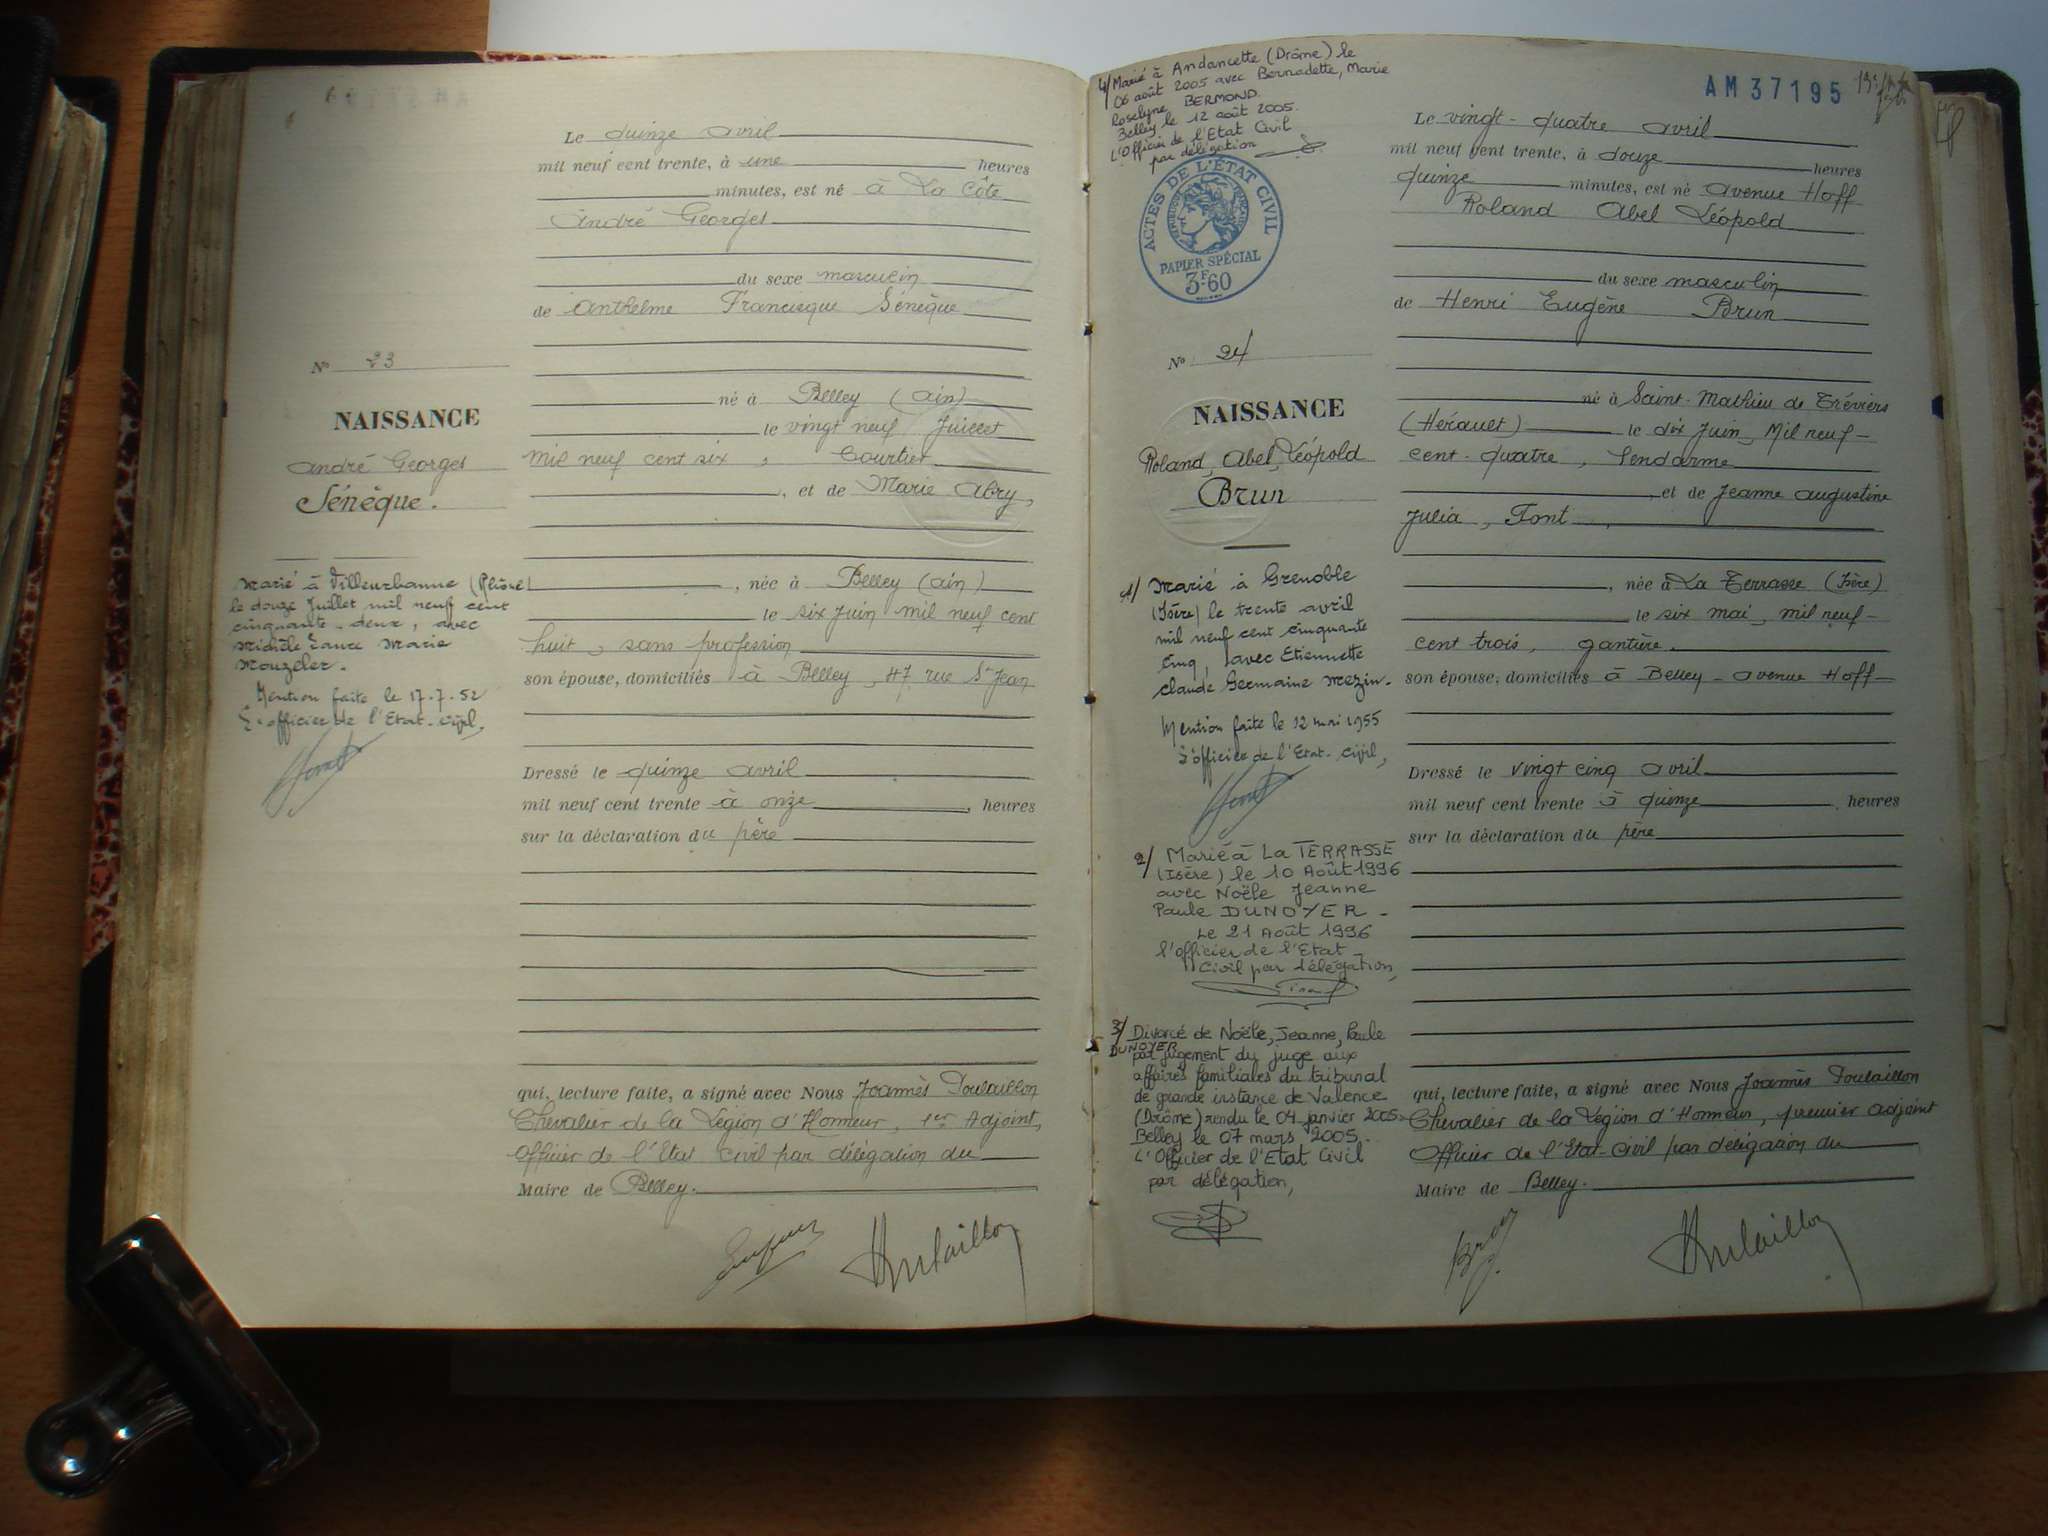 Le quinze avril
mil neuf cent trente, à une heures
minutes, est né à La Côte
André Georges
du sexe masculin
de Anthelme Francisque Sénèque
né à Belley (Ain)
le vingt neuf Juillet
mil neuf cent six, Courtier
, et de Marie Abry,
, née à Belley (Ain)
le six Juin mil neuf cent
huit, sans profession
son épouse, domiciliés à Belley, 47, rue St Jean
Dressé le quinze avril
mil neuf cent trente à onze, heures
sur la déclaration du père
qui, lecture faite, a signé avec Nous Joannès Poulaillon
Chevalier de la Légion d'Honneur, 1er Adjoint,
Officier de l'Etat Civil par délégation du
Maire de Belley.
No 23
NAISSANCE
André Georges
Sénèque.
Marié à Villeurbanne (Rhône)
le douze Juillet mil neuf cent
cinquante-deux, avec
Michèle Laure Marie
Mouzeler.
Mention faite le 17.7.52
L'officier de l'Etat-civil,
4/ Marié à Andancette (Drôme) le
06 août 2005 avec Bernadette, Marie
Roselyne BERMOND.
Belley, le 12 août 2005.
L'Officier de l'Etat Civil
par délégation
ACTES DE L'ÉTAT CIVIL
PAPIER SPÉCIAL
3F.60
AM 37195
No 24
NAISSANCE
Roland, Abel, Léopold
Brun
1/ Marié à Grenoble
(Isère) le trente avril
mil neuf cent cinquante
cinq, avec Etiennette
Claude Germaine Mezin.
Mention faite le 12 mai 1955
L'officier de l'Etat-civil,
2/ Marié à La TERRASSE
(Isère) le 10 Août 1996
avec Noële Jeanne
Paule DUNOYER -
Le 21 Août 1996
l'Officier de l'Etat
Civil par délégation,
3/ Divorcé de Noële, Jeanne, Paule
DUNOYER
par jugement du juge aux
affaires familiales du tribunal
de grande instance de Valence
(Drôme) rendu le 04 janvier 2005.
Belley le 07 mars 2005.
L'Officier de l'Etat Civil
par délégation,
Le vingt-quatre avril
mil neuf cent trente, à douze heures
quinze minutes, est né avenue Hoff
Roland Abel Léopold
du sexe masculin
de Henri Eugène Brun
né à Saint-Mathieu de Tréviers
(Hérault) le dix Juin, Mil neuf-
cent-quatre, Gendarme
, et de Jeanne Augustine
Julia, Font,
, née à La Terrasse (Isère)
le six mai, mil neuf-
cent trois, gantière.
son épouse, domiciliés à Belley - avenue Hoff-
Dressé le vingt cinq avril
mil neuf cent trente à quinze, heures
sur la déclaration du père
qui, lecture faite, a signé avec Nous Joannès Poulaillon
Chevalier de la Légion d'Honneur, premier adjoint
Officier de l'Etat-Civil par délégation du
Maire de Belley.